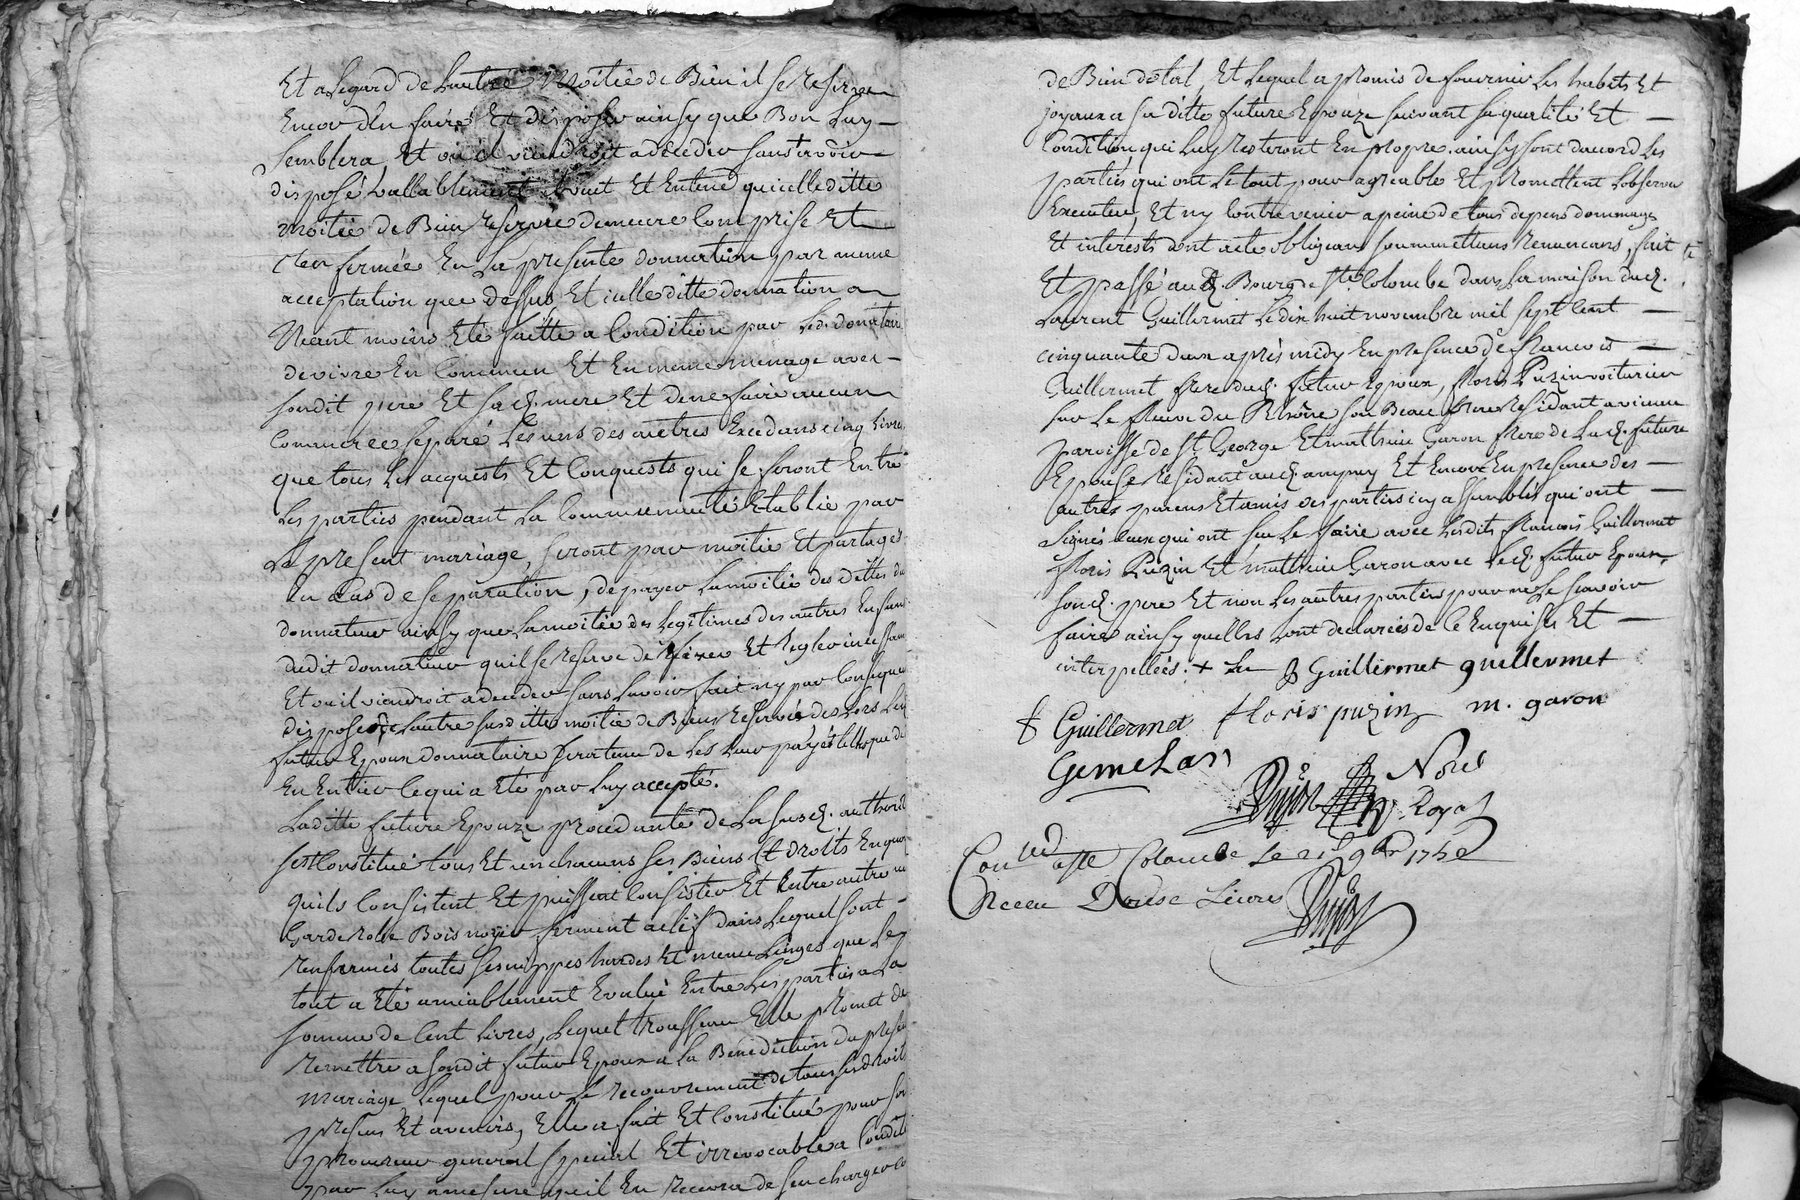 Et alegard de lautre moitié de Bien il se reserve
Encor den faire Et disposer ainsy que Bon luy
semblera Et ou il viendroit a deceder sans avoir
disposé vallablement veut Et Entend quicelle ditte
moitié de Bien reservée demeure comprise Et
renfermée En la presente donnation par meme
acceptation que dessus Et icelle ditte donnation a
Neant moins Eté faitte a Condition par led. donataire
de vivre En Commun Et En meme menage avec
sondit pere Et sad. mere Et de ne faire aucun
Commerce separé les uns des autres Excedans cinq livres
que tous les acquests Et Conquests qui se feront Entre
les parties pendant la Communauté Etablie par
le present mariage, seront par moitié Et partagés
En Cas de separation, de payer la moitié des dettes du
donnateur ainsy que la moitié des legitimes des autres Enfans
dudit donnateur quil se reserve de fixer Et Regler incessam
Et ou il viendroit a deceder sans lavoir fait ny par Consequent
disposé de lautre susditte moitié de Biens Reservée des lors led.
futur Epoux donnataire sera tenu de les leur payer telles que de
En Entier ce qui a Eté par luy accepté.
Laditte future Epouze procedante de la susd. authorité
sest Constitué tous Et un chacuns ses Biens Et droits En quoy
quils Consistent Et puissent Consister Et Entre autre un
Garderobe Bois noyer ferment a clef dans lequel sont
Renfermés toutes ses nippes hardes Et menu linges que le
tout a Eté amiablement Evalué Entre les parties a la
somme de Cent livres, lequel trousseau Elle promet de
Remettre a sondit futur Epoux a la Benediction du present
mariage, lequel pour le recouvrement de tous ses droits
presens Et avenirs, Elle a fait Et Constitué pour son
procureur general special Et irrevocable a Condit
par luy amesure quil En Recevra de sen charger
de Bien dotal, Et lequel a promis de fournir les habits Et
joyaux a sa ditte future Epouze suivant sa qualité Et
Condition qui luy resteront En propre. ainsy sont daccord les
parties qui ont le tout pour agreable Et promettent lobserver
Executer, Et ny Contrevenir a peine de tous depens dommages
Et interests dont acte obligeans soummettans Renoncans, fait
Et passé aud. Bourg de Ste Colombe dans la maison dud.
Laurent Guillermet le dix huit novembre mil sept cent
cinquante deux après midy En presence de francois
Guillermet frere dud. futur Epoux, floris Puzin voiturier
sur le fleuve du Rhône son Beau frere Residant a vienne
paroisse de St George Et mathieu Garon frere de lad. future
Epouse Residant aud. ampuy Et Encore En presence des
autres parens Et amis des parties icy assemblés qui ont
signés ceux qui ont sceu le faire avec lesdits francois Guillermet
floris Puzin Et mathieu Garon avec led. futur Epoux,
sond. pere Et non les autres parties pour ne le scavoir
faire ainsy quelles lont declarées de ce Enquises Et
interpellées: + Guillermet guillermet
f Guillermet floris puzin m. garon
Gemelas
Dujast Nore
Royal
Con lé a Ste Colombe le 9bre 1752
Receu Douse Livres
Dujast